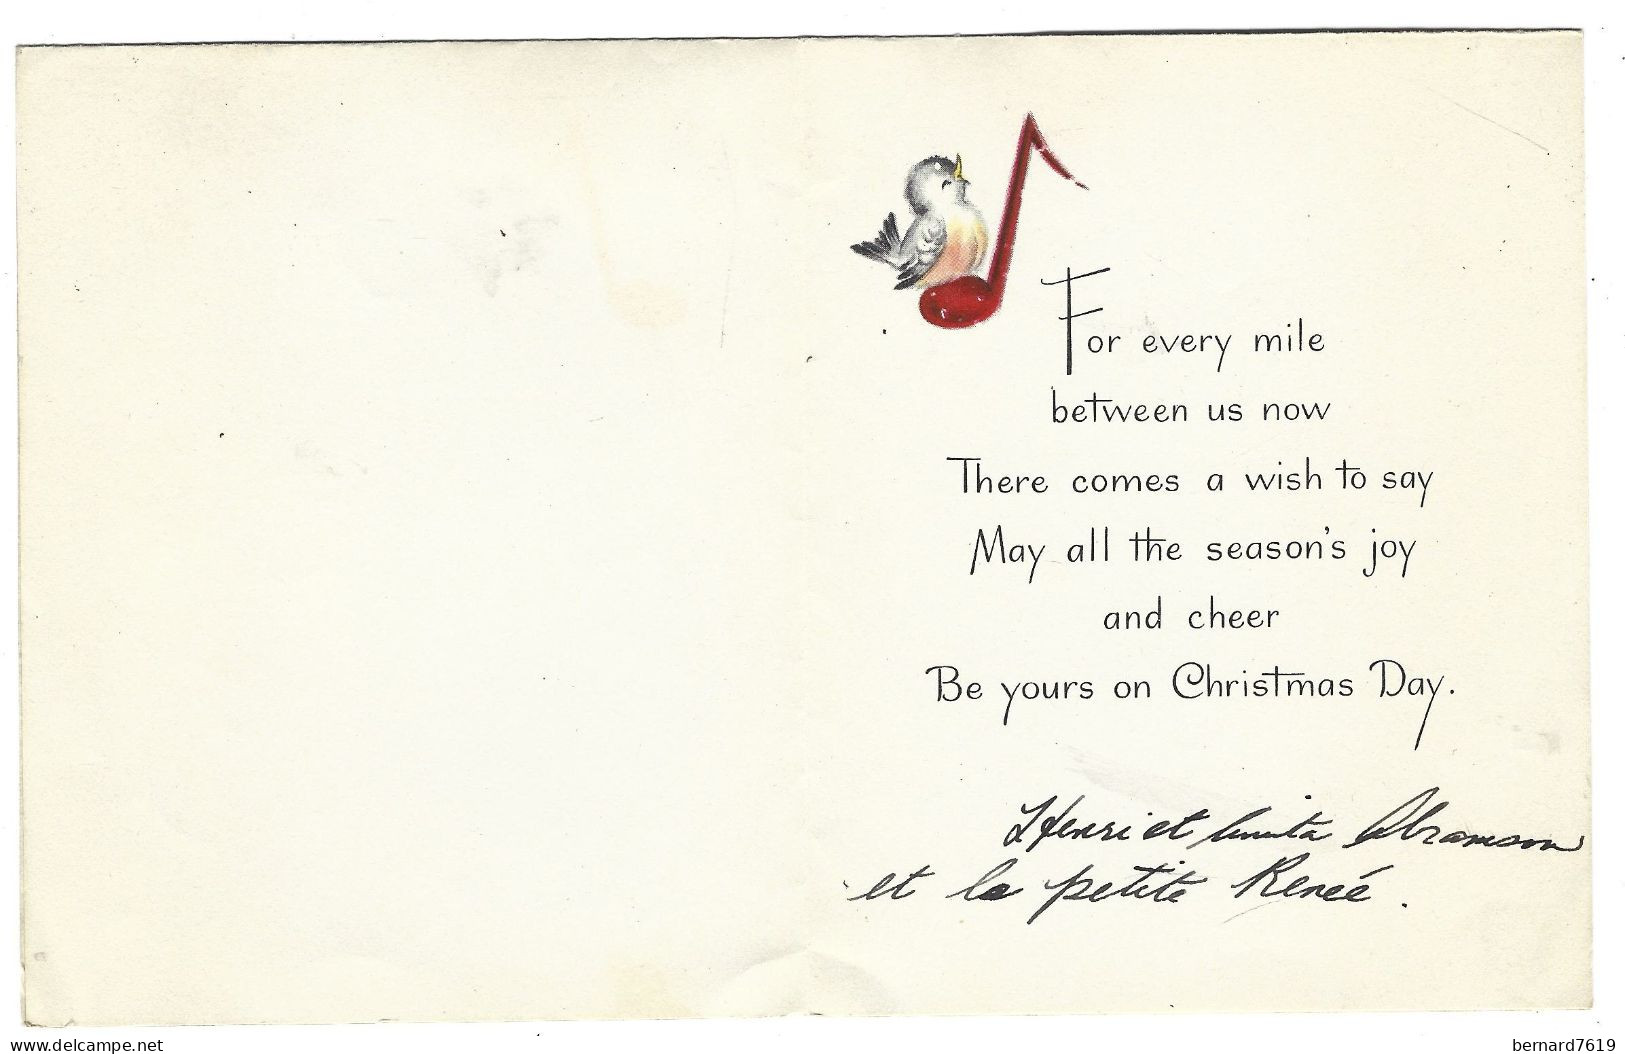 For every mile
between us now
There comes a wish to say
May all the season's joy
and cheer
Be yours on Christmas Day.
Henri et Anita Abramson
et la petite Renée.
www.delcampe.net
bernard7619